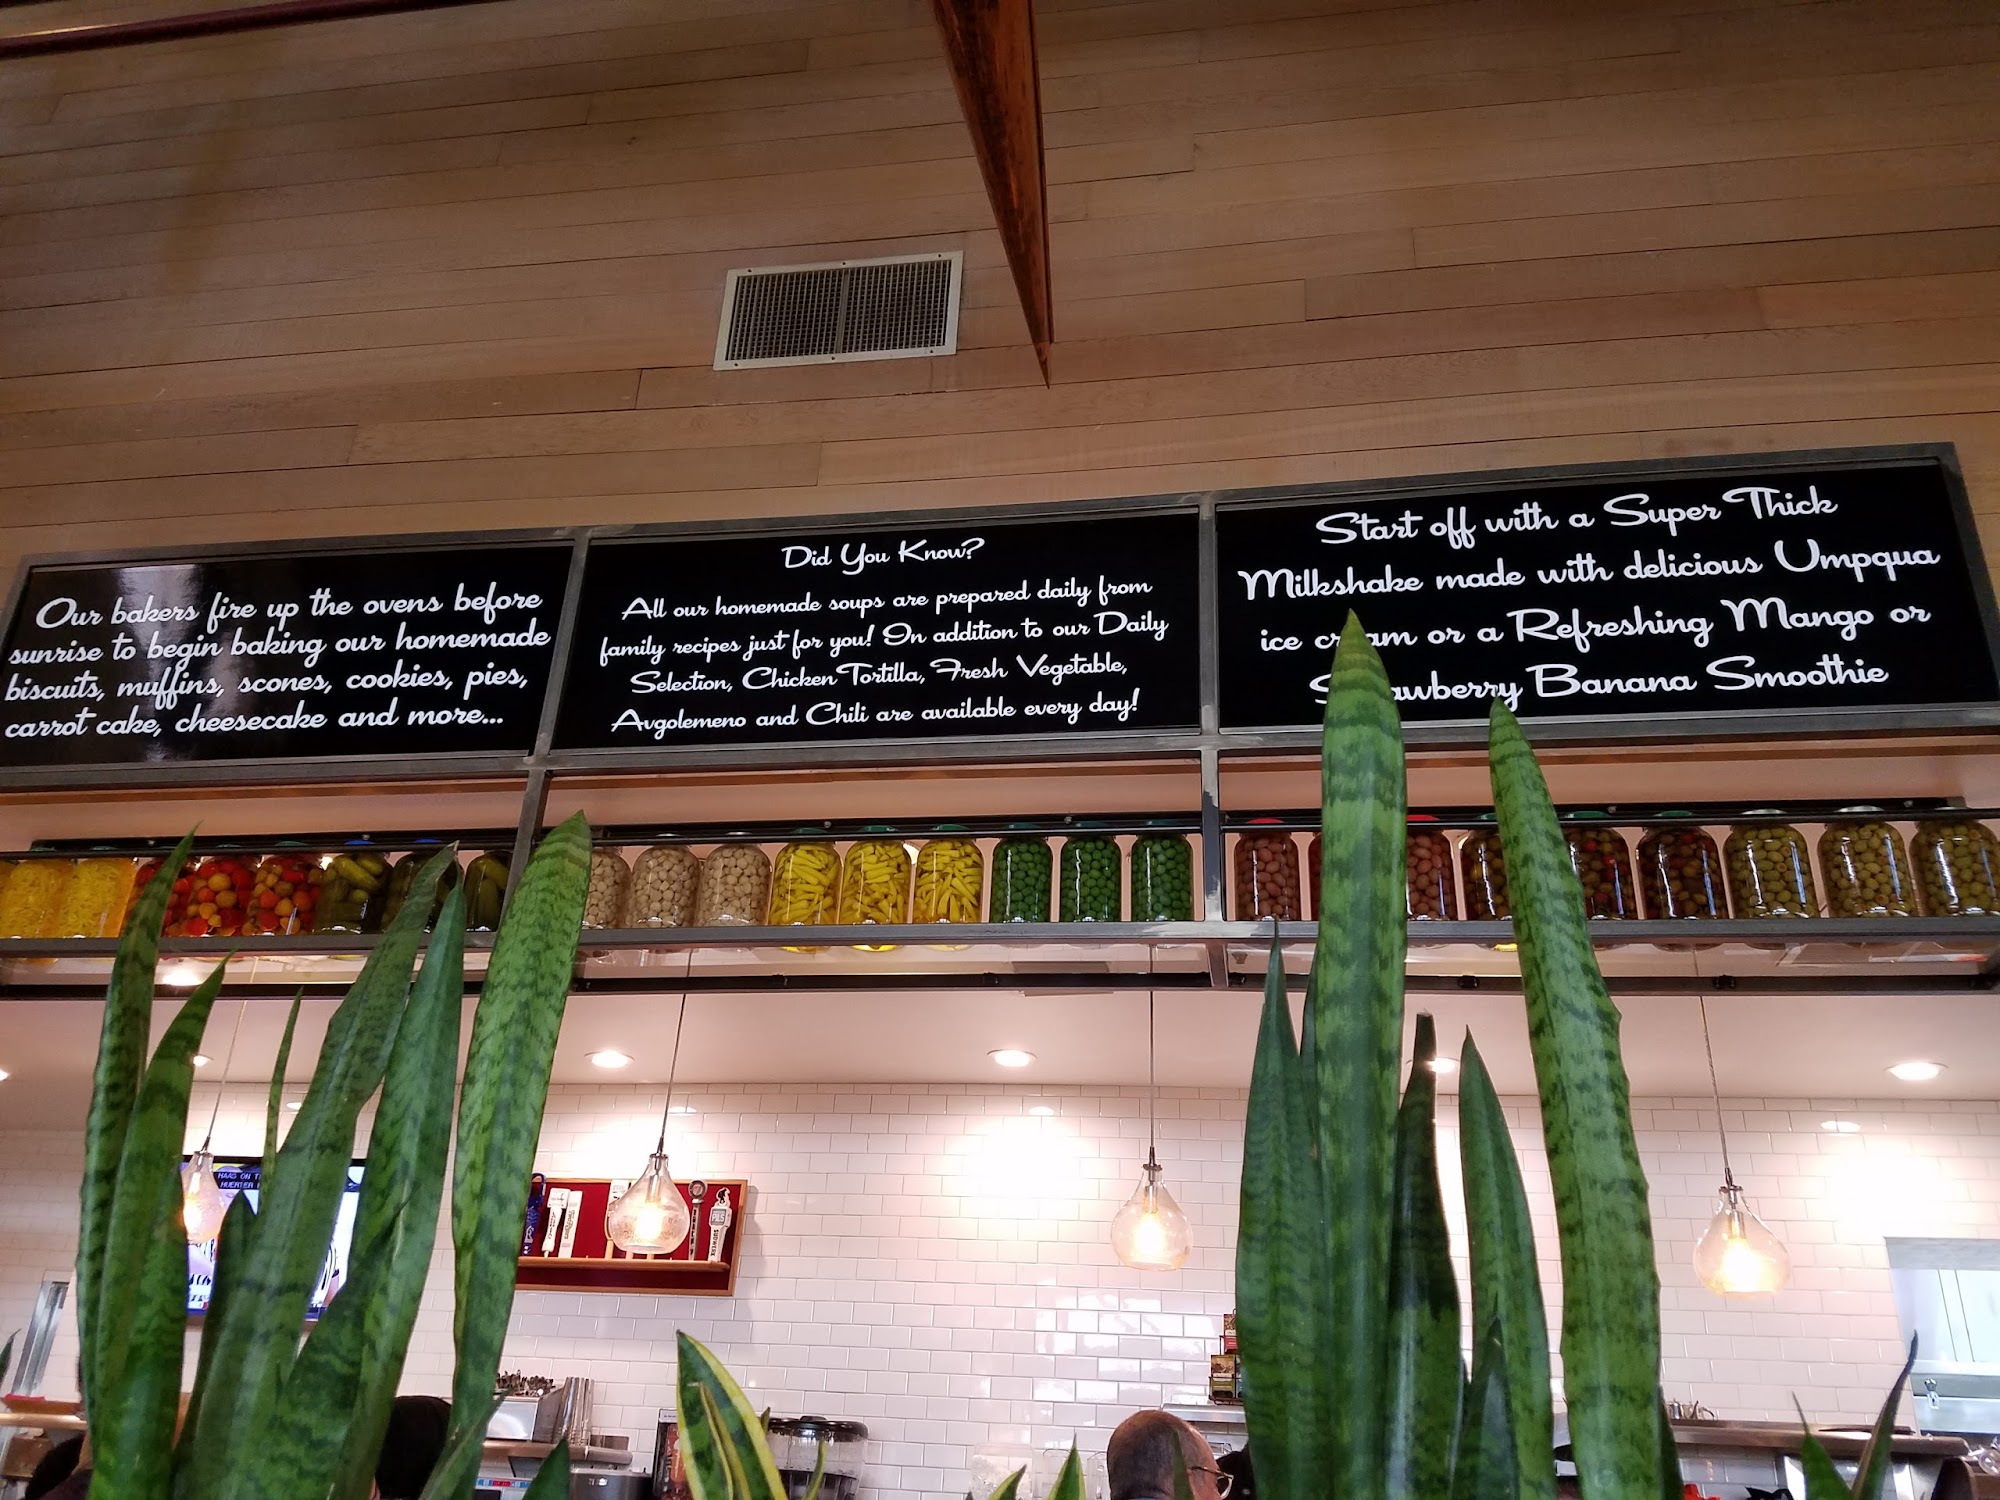 Our bakers fire up the ovens before
sunrise to begin baking our homemade
biscuits, muffins, scones, cookies, pies,
carrot cake, cheesecake and more...
Did You Know?
All our homemade soups are prepared daily from
family recipes just for you! In addition to our Daily
Selection, Chicken Tortilla, Fresh Vegetable,
Avgolemeno and Chili are available every day!
Start off with a Super Thick
Milkshake made with delicious Umpqua
ice cream or a Refreshing Mango or
Strawberry Banana Smoothie
HAAS ON
HUERTER
PILS
SUDWERK